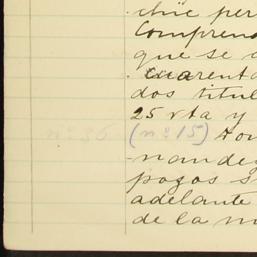 que per
Comprend
que se a
cuarenta
dos titul
25 rta y
nº 36 (nº 15) Hon
nandez
pozos s
adelante
de la m